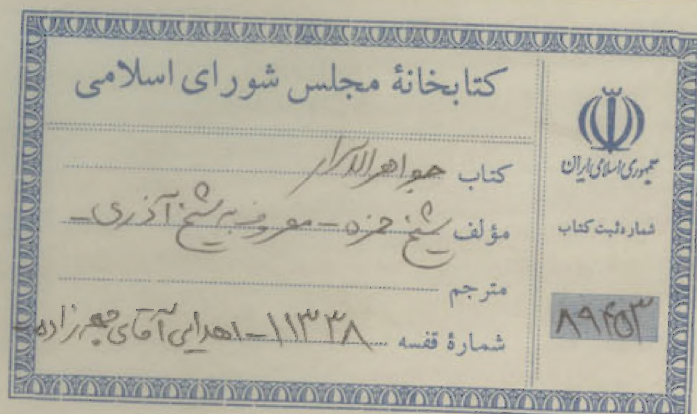 کتابخانهٔ مجلس شورای اسلامی
کتاب جواهر الاسرار
مؤلف شیخ حمزه - معروف به شیخ آذری -
مترجم
شمارهٔ قفسه ۱۱۳۳۸ - اهدایی آقای
جمهوری اسلامی ایران
شماره ثبت کتاب
۸۹۴۵۳